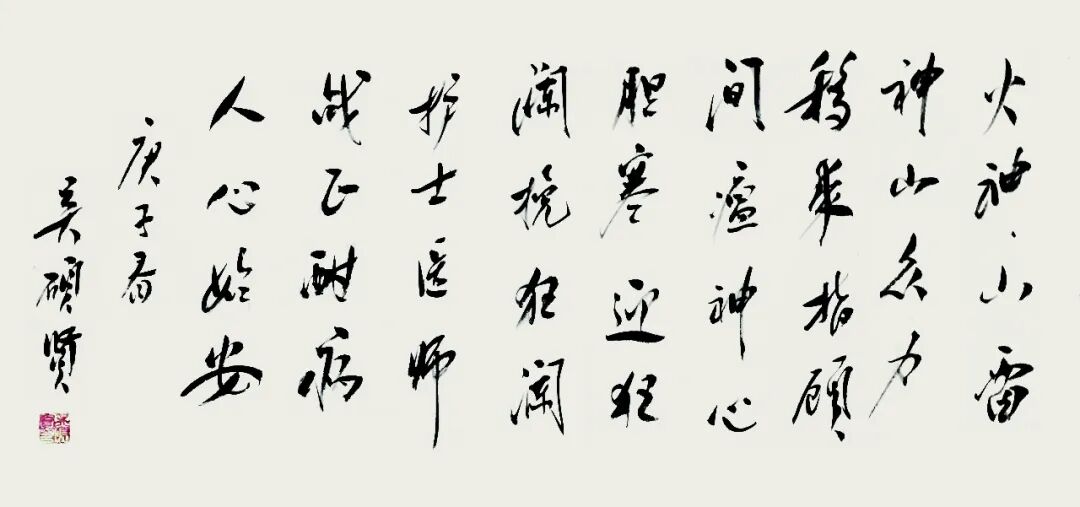 火神山雷
神山众力
移来指顾
间瘟神心
胆寒迎狂
澜挽狂澜
护士医师
战正酣病
人心始安
庚子春
吴硕贤